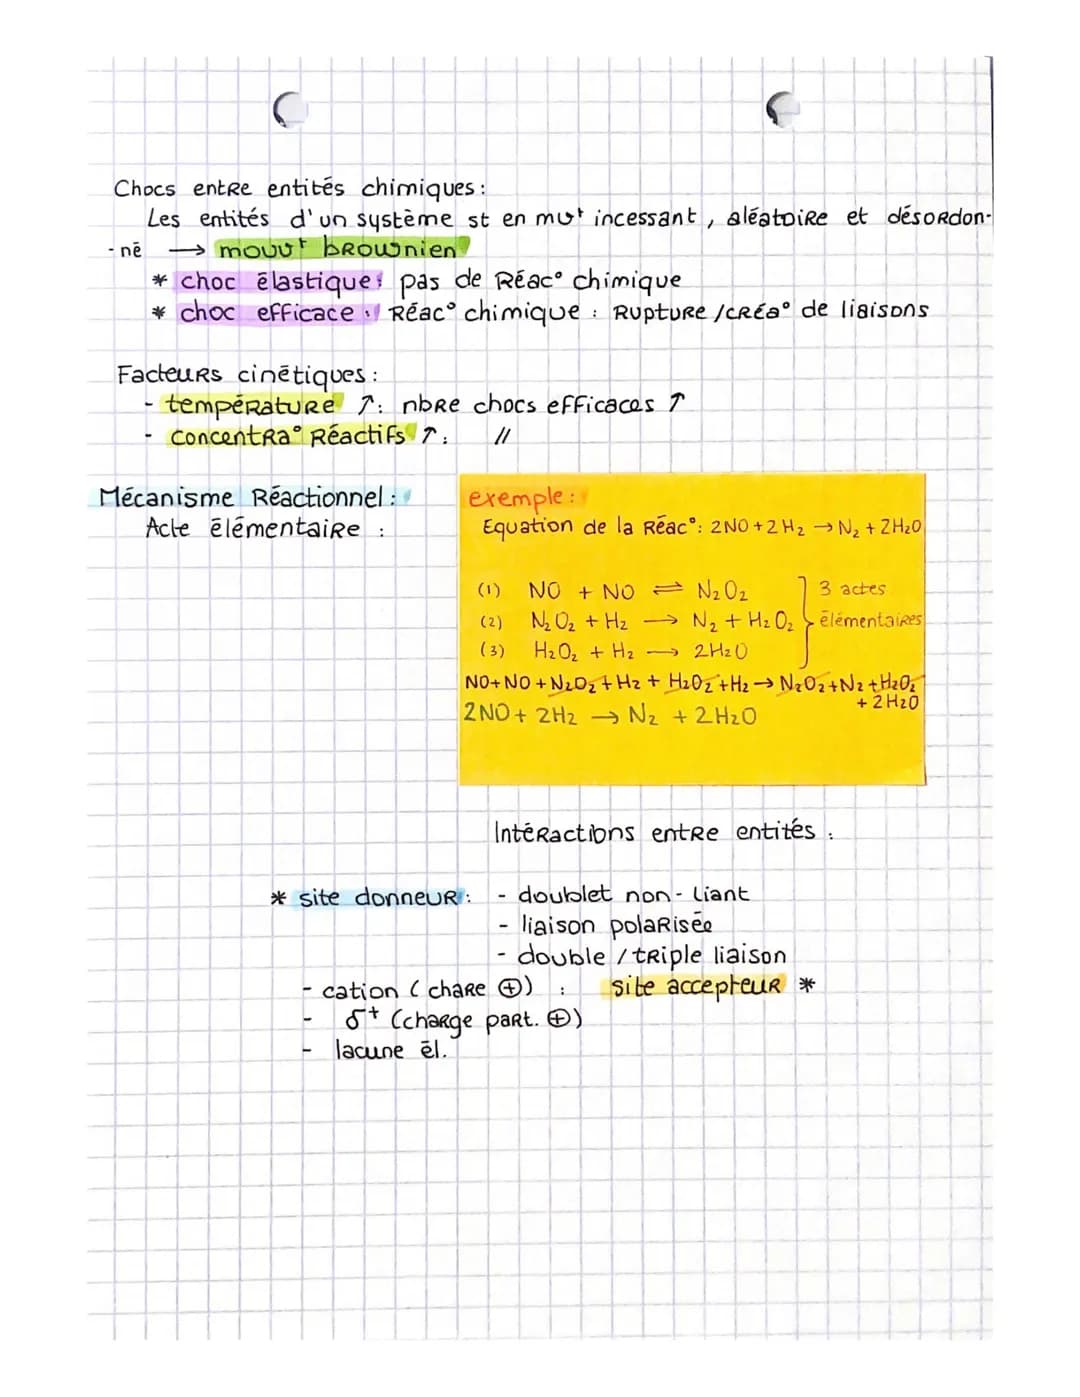 Chocs entre entités chimiques :
Les entités d'un système st en mvt incessant, aléatoire et désordon-
-né → mouvt brownien
* choc élastique : pas de Réac° chimique
* choc efficace : Réac° chimique : Rupture /créa° de liaisons
Facteurs cinétiques :
- température ↑ : nbre chocs efficaces ↑
- concentra° Réactifs ↑ : //
Mécanisme Réactionnel :
Acte élémentaire :
exemple :
Equation de la Réac° : 2NO + 2H₂ → N₂ + 2H₂O
(1) NO + NO ⇌ N₂O₂
(2) N₂O₂ + H₂ → N₂ + H₂O₂
(3) H₂O₂ + H₂ → 2H₂O
3 actes
élémentaires
NO+NO+N₂O₂+H₂+H₂O₂+H₂ → N₂O₂+N₂+H₂O₂
+ 2H₂O
2NO + 2H₂ → N₂ + 2H₂O
Intéractions entre entités :
* site donneur : - doublet non-liant
- liaison polarisée
- double / triple liaison
- cation (chare ⊕) : site accepteur *
- δ⁺ (charge part. ⊕)
- lacune él.